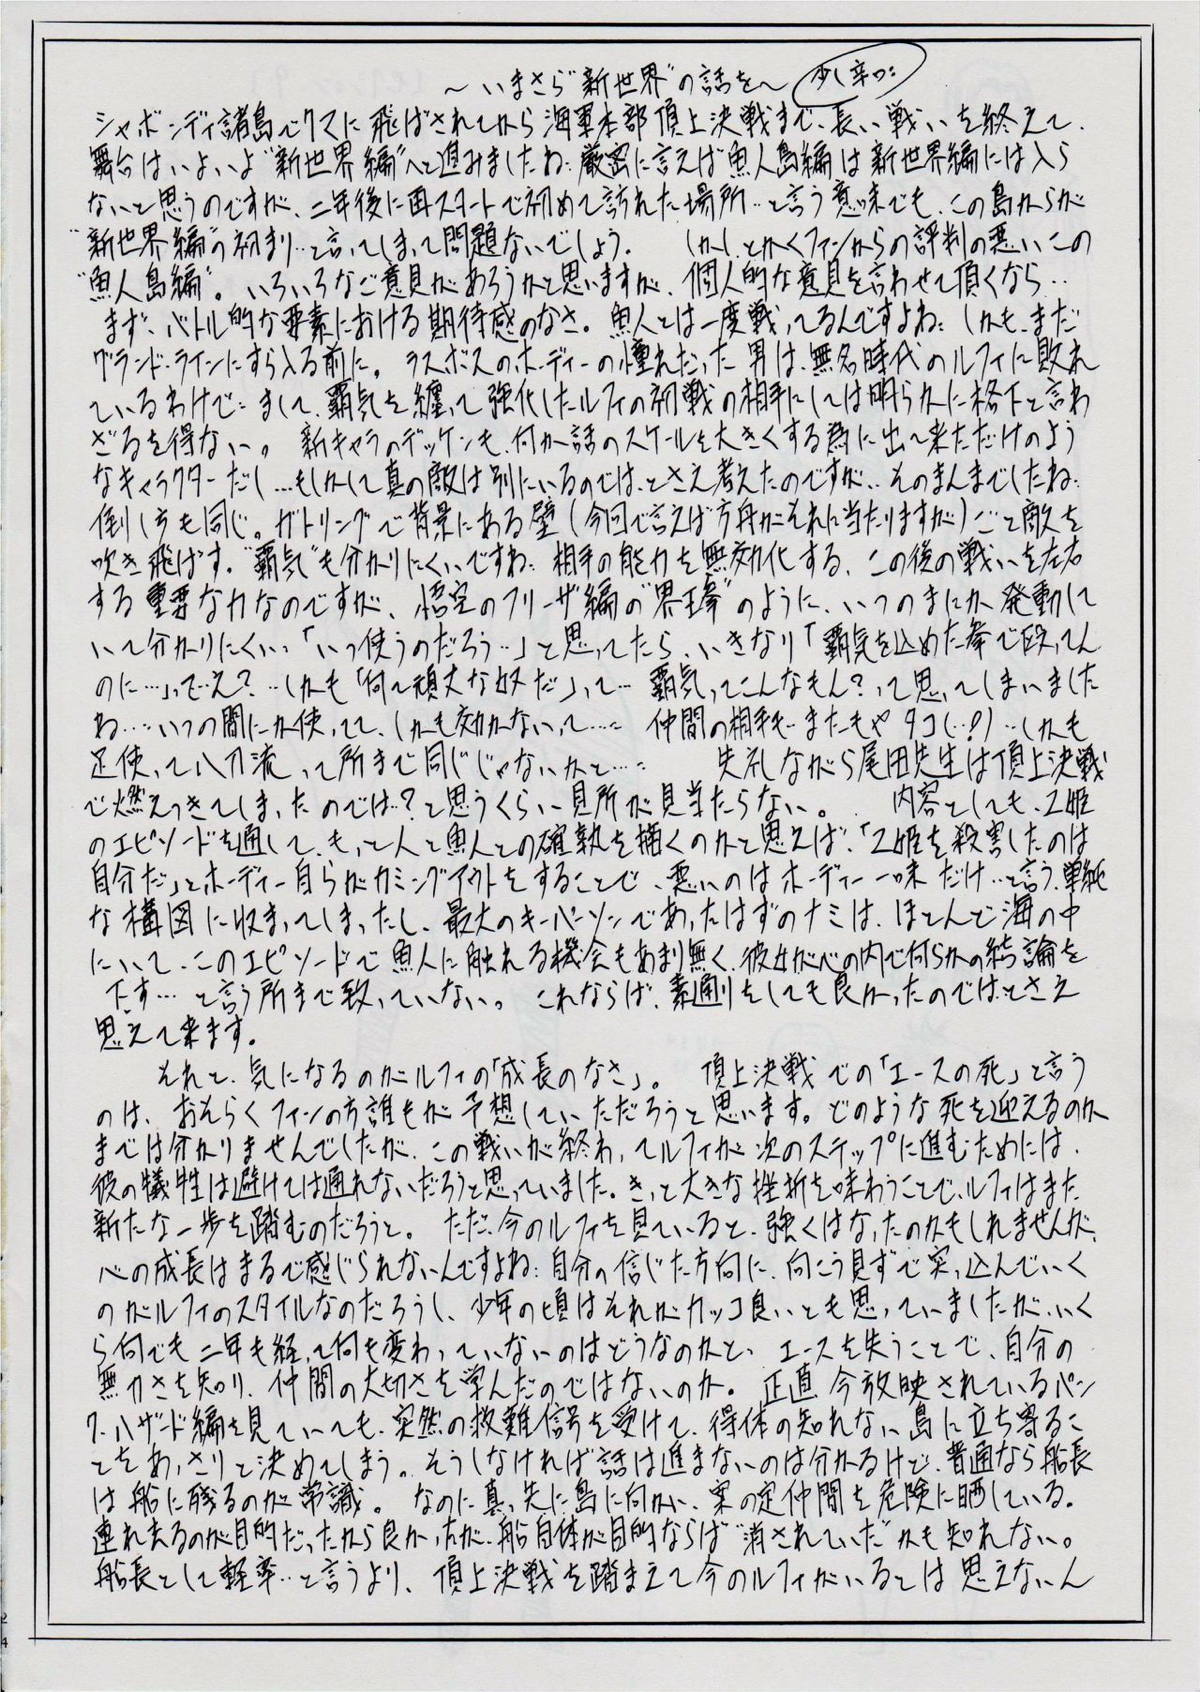 ～いまさら"新世界"の話を～ 少し辛口:
シャボンディ諸島でクマに飛ばされてから海軍本部頂上決戦まで、長い戦いを終えて、
舞台はいよいよ"新世界編"へと進みましたね: 厳密に言えば魚人島編は新世界編には入ら
ないと思うのですが、二年後に再スタートで初めて訪れた場所…と言う意味でも、この島からが
"新世界編"の初まり…と言ってしまって問題ないでしょう。 しかし、とかくファンからの評判の悪いこの
"魚人島編"。いろいろなご意見があろうかと思いますが、個人的な意見を言わせて頂くなら…
まず、バトル的な要素における期待感のなさ。魚人とは一度戦ってるんですよね: しかも、まだ
グランドラインにすら入る前に。ラスボスのホーディーの憧れだった男は、無名時代のルフィに敗れ
ているわけで: まして、覇気を纏って強化したルフィの初戦の相手にしては明らかに格下と言わ
ざるを得ない。新キャラのデッケンも、何か話のスケールを大きくする為に出て来ただけのよう
なキャラクターだし…もしかして真の敵は別にいるのでは、とさえ考えたのですが、そのまんまでしたね:
倒し方も同じ。ガトリングで背景にある壁(今回で言えば方舟がそれに当たりますが)ごと敵を
吹き飛ばす。"覇気"も分かりにくいですね: 相手の能力を無効化する、この後の戦いを左右
する重要な力なのですが、悟空のフリーザ編の"界王拳"のように、いつのまにか発動して
いて分かりにくい。「いつ使うのだろう…」と思ってたら、いきなり「覇気を込めた拳で殴ってん
のに…」って…え?…しかも「何て頑丈な奴だ」って… 覇気ってこんなもん?って思ってしまいました
ね…いつの間にか使ってて、しかも効かないって…… 仲間の相手も、またもやタコ(…?)…しかも
足使って八刀流って所まで同じじゃないかと…… 失礼ながら尾田先生は頂上決戦
で燃えつきてしまったのでは…?と思うくらい見所が見当たらない。 内容としても、乙姫
のエピソードを通して、もっと人と魚人との確執を描くのかと思えば、「乙姫を殺害したのは
自分だ」とホーディー自らがカミングアウトをすることで、悪いのはホーディー一味だけ…と言う、単純
な構図に収まってしまったし、最大のキーパーソンであったはずのナミは、ほとんど海の中
にいて、このエピソードで魚人に触れる機会もあまり無く、彼女が心の内で何らかの結論を
下す…と言う所まで致っていない。これならば、素通りをしても良かったのでは、とさえ
思えて来ます。
それと、気になるのがルフィの「成長のなさ」。 頂上決戦での「エースの死」と言う
のは、おそらくファンの方誰もが予想していただろうと思います。どのような死を迎えるのか
までは分かりませんでしたが、この戦いが終わってルフィが次のステップに進むためには、
彼の犠牲は避けては通れないだろうと思っていました。きっと大きな挫折を味わうことで、ルフィはまた
新たな一歩を踏むのだろうと。 ただ、今のルフィを見ていると、強くはなったのかもしれませんが、
心の成長はまるで感じられないんですよね: 自分の信じた方向に、向こう見ずで突っ込んでいく
のがルフィのスタイルなのだろうし、少年の頃はそれがカッコ良いとも思っていましたが、いく
ら何でも二年も経って何も変わっていないのはどうなのかと、エースを失うことで、自分の
無力さを知り、仲間の大切さを学んだのではないのか。正直今放映されているパン
ク・ハザード編を見ていても、突然の救難信号を受けて、得体の知れない島に立ち寄るこ
とをあっさりと決めてしまう。そうしなければ話は進まないのは分かるけど、普通なら船長
は船に残るのが常識。 なのに真っ先に島に向かい、案の定仲間を危険に晒している。
連れ去るのが目的だったから良かったが、船自体が目的ならば"消されていた"かも知れない。
船長として軽率…と言うより、頂上決戦を踏まえて今のルフィがいるとは思えないん
24